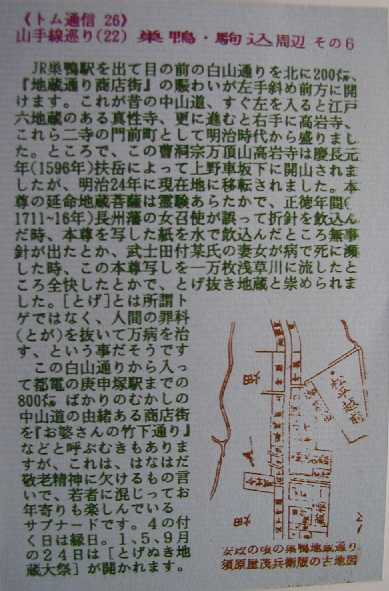 《トム通信 26》
山手線巡り(22) 巣鴨・駒込周辺 その6
JR巣鴨駅を出て目の前の白山通りを北に200㍍、
『地蔵通り商店街』の賑わいが左手斜め前方に開
けます。これが昔の中山道、すぐ左を入ると江戸
六地蔵のある真性寺、更に進むと右手に高岩寺、
これら二寺の門前町として明治時代から盛りまし
た。ところで、この曹洞宗万頂山高岩寺は慶長元
年(1596年)扶岳によって上野車坂下に開山されま
したが、明治24年に現在地に移転されました。本
尊の延命地蔵菩薩は霊験あらたかで、正徳年間(
1711~16年)長州藩の女召使が誤って折針を飲込ん
だ時、本尊を写した紙を水で飲込んだところ無事
針が出たとか、武士田付某氏の妻女が病で死に瀕
した時、この本尊写しを一万枚浅草川に流したと
ころ全快したとかで、とげ抜き地蔵と崇められま
した。[とげ]とは所謂ト
ゲではなく、人間の罪科
(とが)を抜いて万病を治
す、という事だそうです
この白山通りから入っ
て都電の庚申塚駅までの
800㍍ ばかりのむかしの
中山道の由緒ある商店街
を『お婆さんの竹下通り』
などと呼ぶむきもありま
すが、これは、はなはだ
敬老精神に欠けるもの言
いで、若者に混じってお
年寄りも楽しんでいる
サブナードです。4の付
く日は縁日。1、5、9月
の24日は[とげぬき地
蔵大祭]が開かれます。
安政の頃の巣鴨地蔵通り
須原屋茂兵衛版の古地図